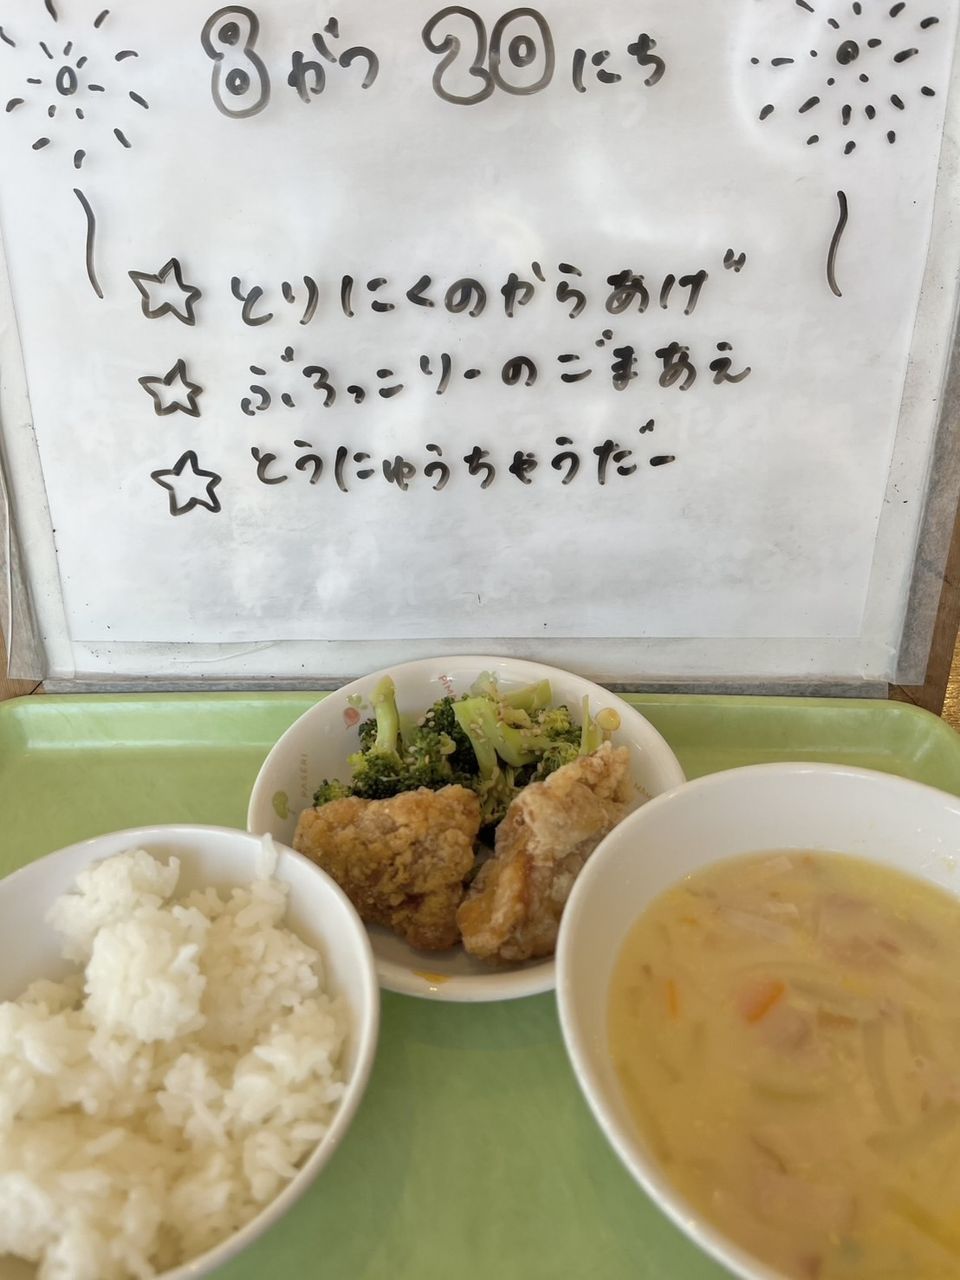 8がつ 20にち
とりにくのからあげ
ぶろっこりーのごまあえ
とうにゅうちゃうだー
PASERI